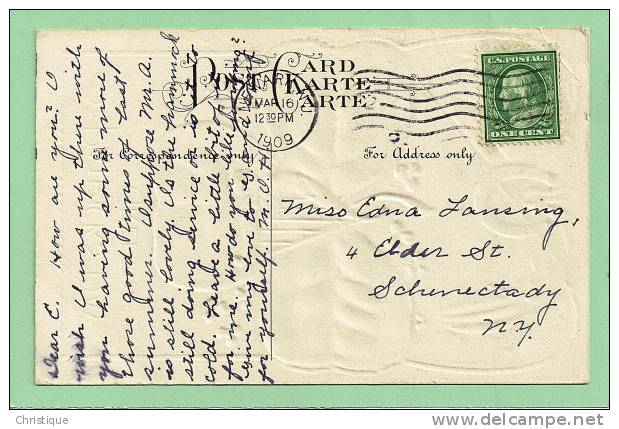 POST CARD
CARTE
KARTE
MAR 16
12 30 PM
1909
U.S. POSTAGE
ONE CENT
For Correspondence only
For Address only
Dear E. How are you? I
wish I was up there with
you having some more of
those good times of last
summer. I suppose Mr. A.
is still lovely. Is the hammock
still doing service or is it to
cold. Leave a little bit of
for me. How do you like
Give my love to G. and
for yourself. M. O. H.
Miss Edna Lansing,
4 Elder St.
Schenectady
N.Y.
Christique
www.delcampe.net